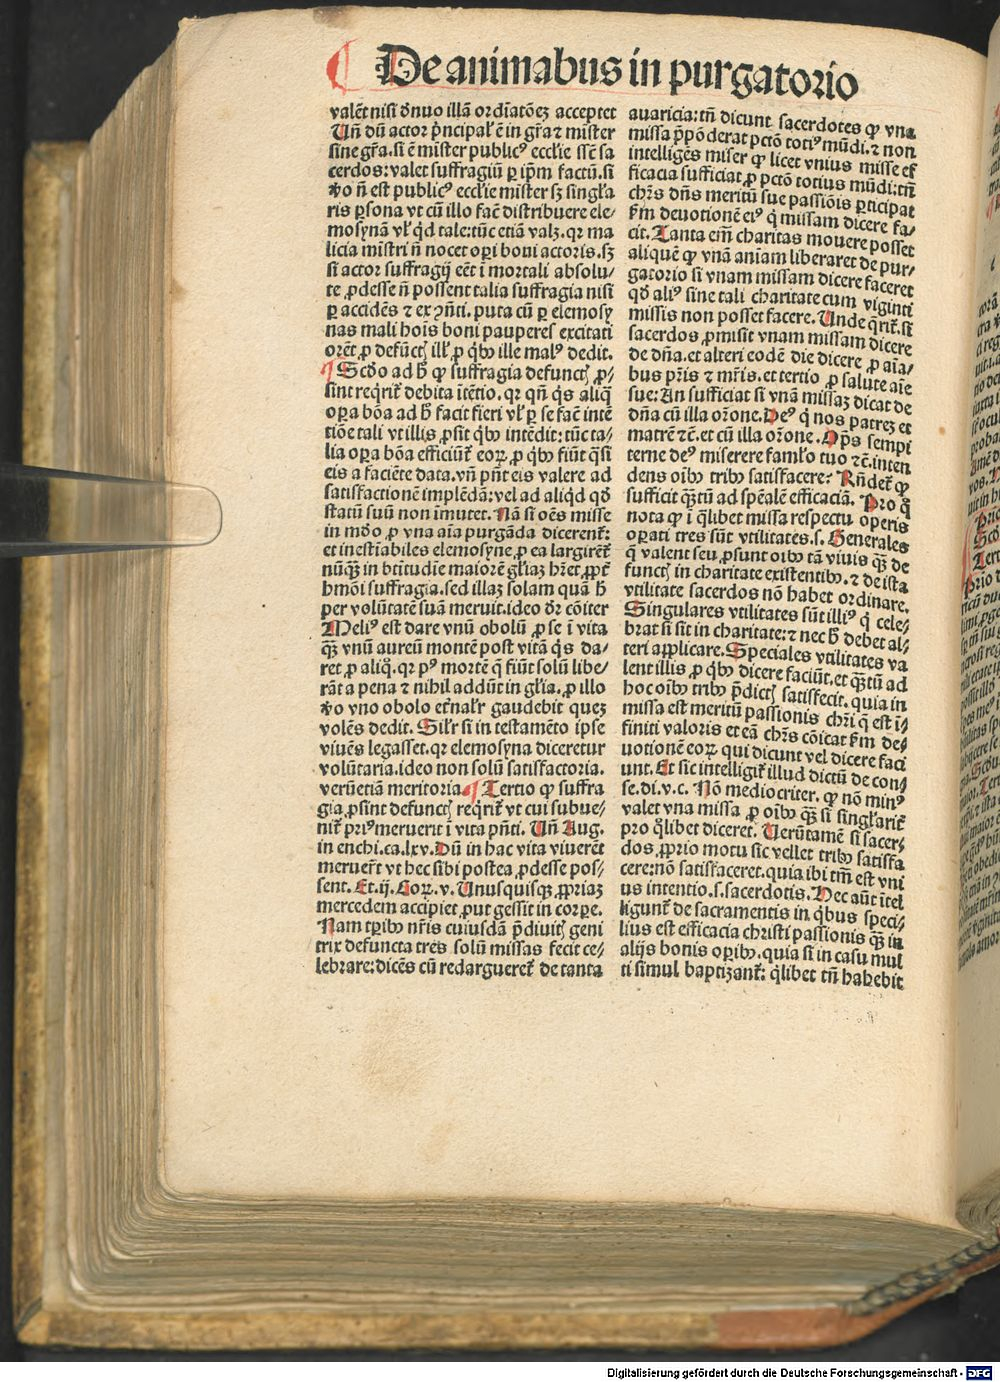 De animabus in purgatorio
valēt nisi dēnuo illā ordīatōeꝫ acceptet
Uñ dū actor p̄ncipal' ē in gr̄a ⁊ mister
sine gr̄a. si ē mister publicꝰ ecclie ssē sa
cerdos: valet suffragiū ꝑ ip̄m factū. si
v̊o n̄ est publicꝰ ecclie mister sꝫ singl'a
ris ꝑsona vt cū illo facē distribuere ele⸗
mosynā vl' q̇d tale: tūc etiā valꝫ. qꝛ ma
licia mīstri n̄ nocet oꝑi boni actoris. sꝫ
si actor suffragij eēt ī mortali absolu⸗
te ꝓdesse n̄ possent talia suffragia nisi
ꝑ accidēs ⁊ ex ꝯn̄ti. puta cū ꝑ elemosy
nas mali hoīs boni pauperes excitati
orēt ꝓ defūctꝭ ill' ꝓ q̇bꝰ ille malꝰ dedit.
¶ Scd̄o ad h̄ ꝙ suffragia defunctꝭ ꝓ⸗
sint reqrit̄ debita ītētio. qꝛ qn̄ q̇s aliq̄
oꝑa bōa ad h̄ facit fieri vl' ꝑ se facē intē
tiōe tali vt illis ꝓsit q̇bꝰ intēdit: tūc ta⸗
lia oꝑa bōa efficiūt̄ eoꝝ ꝓ q̇bꝰ fiūt q̇si
eis a faciēte data. vn̄ pn̄t eis valere ad
satisfactionē implēdā: vel ad aliq̇d qd̄
statū suū non īmutet. Nā si oēs misse
in mūdo ꝓ vna aīa purgāda dicerent̄:
et inestīabiles elemosyne ꝓ ea largirēt̄
nūq̄ꝫ in btītudīe maiorē gl'iaꝫ hr̄et ꝓpt̄
hmōi suffragia. sed illaꝫ solam quā h̄
per volūtatē suā meruit. ideo dr̄ cōiter
Meliꝰ est dare vnū obolū ꝓ se ī vita
q̄ꝫ vnū aureū montē post vitā q̇s da⸗
ret ꝓ aliq̊. qꝛ pꝰ mortē q̄ fiūt solū libe⸗
rāt a pena ⁊ nihil addūt in gl'ia. ꝓ illo
v̊o vno obolo et̄nalr̄ gaudebit quez
volēs dedit. Silr̄ si in testamēto ipse
viuēs legasset. qꝛ elemosyna diceretur
volūtaria. ideo non solū satisfactoria.
verūetiā meritoria. ¶ Tertio ꝙ suffra
gia ꝓsint defunctꝭ reqrit̄ vt cui subue⸗
nit̄ priꝰ meruerit ī vita pn̄ti. Uñ Aug.
in enchi. ca. lxv. Dū in hac vita viuerēt
meruer̄t vt hec sibi postea ꝓdesse pos⸗
sent. Et. ij. Coꝝ. v. Unusquisqꝫ ꝓpriaꝫ
mercedem accipiet ꝓut gessit in corꝑe.
Nam tꝑibꝰ nr̄is cuiusdā p̄diuitꝭ geni
trix defuncta tres solū missas fecit ce⸗
lebrare: dicēs cū redargueret̄ de tanta
auaricia: tn̄ dicunt sacerdotes ꝙ vna
missa p̄pōderat pctō totiꝰ mūdi. ⁊ non
intelligēs miser ꝙ licet vnius misse ef
ficacia sufficiat ꝓ pctō totius mūdi: tn̄
chr̄s dn̄s meritū sue passiōis ꝑticipat
fm̄ deuotionē eiꝰ q̇ missam dicere fa⸗
cit. Tanta em̄ charitas mouere posset
aliquē ꝙ vnā aniam liberaret de pur⸗
gatorio si vnam missam dicere faceret
qd̄ aliꝰ sine tali charitate cum viginti
missis non posset facere. Unde q̄rit̄. si
sacerdos ꝓmisit vnam missam dicere
de dn̄a. et alteri eodē die dicere ꝓ aīa⸗
bus pr̄is ⁊ mr̄is. et tertio ꝓ salute aīe
sue: An sufficiat si vnā missaꝫ dicat de
dn̄a cū illa or̄one. Deꝰ q̇ nos patreꝫ et
matrē ⁊c̄. et cū illa or̄one. Op̄s sempi
terne deꝰ miserere faml'o tuo ⁊c̄. inten
dens oībꝰ tribꝰ satisfacere? Rn̄det̄ ꝙ
sufficit q̄ꝫtū ad sp̄ealē efficaciā. Pro q̊
nota ꝙ ī q̇libet missa respectu operis
oꝑati tres sūt vtilitates. s. Generales
q̄ valent seu ꝓsunt oībꝰ tā viuis q̄ꝫ de
functꝭ in charitate existentibꝰ. ⁊ de ista
vtilitate sacerdos nō habet ordinare.
Singulares vtilitates sūt illiꝰ q̇ cele⸗
brat si sit in charitate: ⁊ nec h̄ debet al⸗
teri applicare. Speciales vtilitates va
lent illis ꝓ q̇bꝰ dicere faciūt. et q̄ꝫtū ad
hoc oībꝰ tribꝰ p̄dictꝭ satisfecit. quia in
missa est meritū passionis chr̄i q̄ est ī⸗
finiti valoris et eā chr̄s cōicat fm̄ de⸗
uotionē eoꝝ qui dicunt vel dicere faci
unt. Et sic intelligit̄ illud dictū de con⸗
se. di. v. c. Nō mediocriter. ꝙ nō minꝰ
valet vna missa ꝓ oībꝰ q̄ꝫ si singl'arit̄
pro q̊libet diceret̄. Uerūtamē si sacer⸗
dos ꝓprio motu sic vellet tribꝰ satisfa
cere: nō satisfaceret. quia ibi tm̄ est vni
us intentio. s. sacerdotis. Hec aūt ītel
ligunt̄ de sacramentis in q̇bus speci⸗
lius est efficacia christi passionis q̄ꝫ in
alijs bonis oꝑibꝰ. quia si in casu mul
ti simul baptiꝫant̄: q̇libet tn̄ habebit
Digitalisierung gefördert durch die Deutsche Forschungsgemeinschaft - DFG